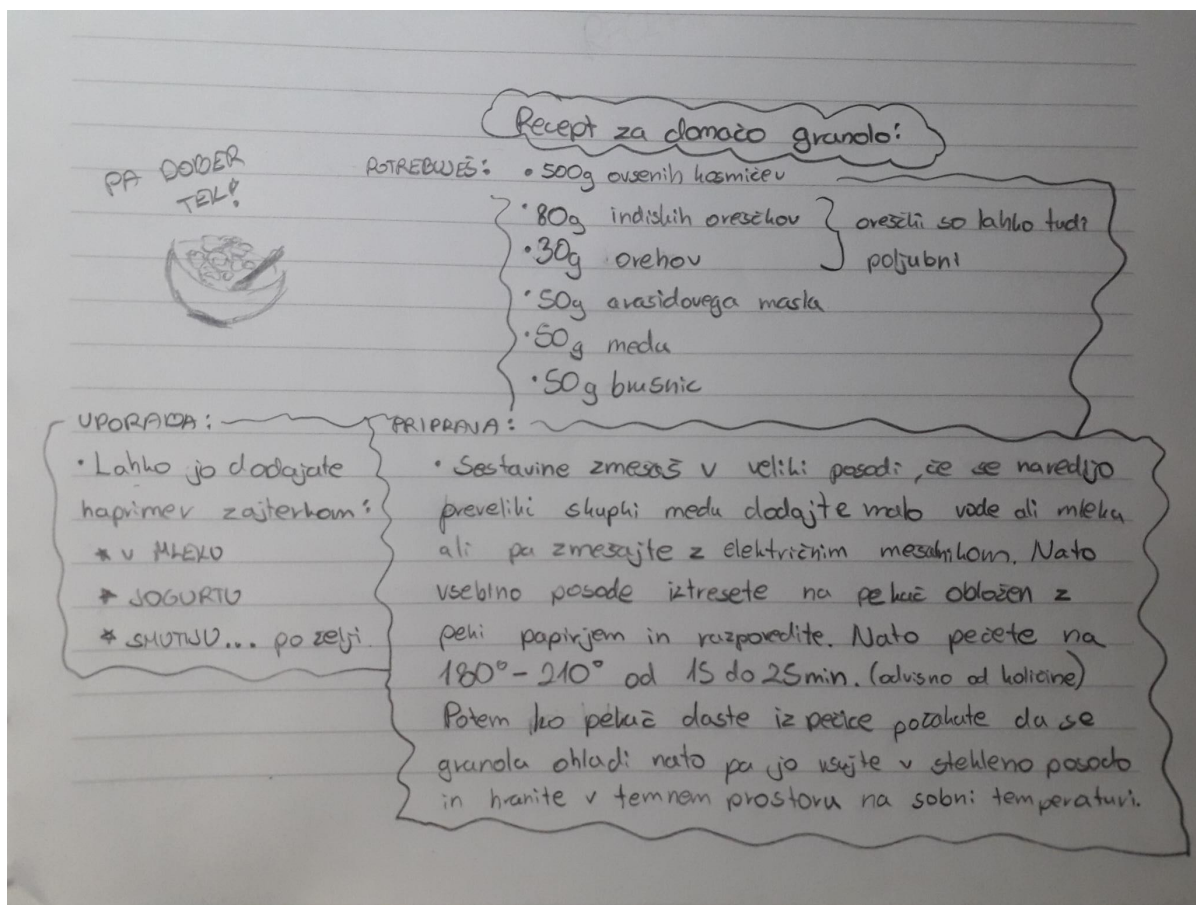 Recept za domačo granolo:
PA DOBER
TEK!
POTREBUJEŠ: • 500g ovsenih kosmičev
• 80g indiskih oreščkov } oreščki so lahko tudi
• 30g orehov } poljubni
• 50g arašidovega masla
• 50g medu
• 50g brusnic
UPORABA:
• Lahko jo dodajate
naprimer zajterkom:
* V MLEKO
* JOGURTU
* SMUTIJU... po zelji.
PRIPRAVA:
• Sestavine zmešaš v veliki posodi, če se naredijo
preveliki skupki medu dodajte malo vode ali mleka
ali pa zmesajte z električnim mesalnikom. Nato
vsebino posode iztresete na pekač obložen z
peki papirjem in razporedite. Nato pečete na
180° - 210° od 15 do 25min. (odvisno od količine)
Potem ko pekač daste iz pečice počakate da se
granola ohladi nato pa jo vsujte v stekleno posodo
in hranite v temnem prostoru na sobni temperaturi.